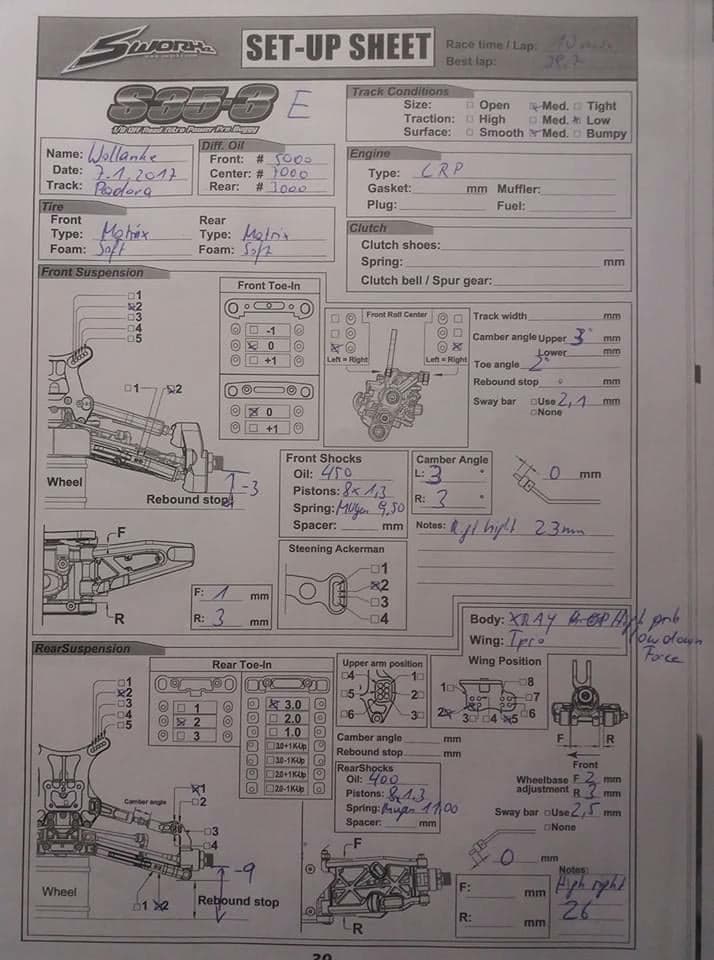 SWORKz
SET-UP SHEET
Race time / Lap:
Best lap:
S35-3 E
1/8 Off Road Nitro Power Pro Buggy
Track Conditions
Size: Open Med. Tight
Traction: High Med. Low
Surface: Smooth Med. Bumpy
Name: Wollanke
Date: 7.1.2017
Track:
Diff. Oil
Front: # 5000
Center: # 7000
Rear: # 3000
Engine
Type: LRP
Gasket: mm Muffler:
Plug: Fuel:
Tire
Front
Type: Matrix
Foam: Soft
Rear
Type: Matrix
Foam: Soft
Clutch
Clutch shoes:
Spring: mm
Clutch bell / Spur gear:
Front Suspension
1
2
3
4
5
1 2
Wheel
Rebound stop -3
Front Toe-In
-1
0
+1
0
+1
Front Roll Center
Left = Right Left = Right
Track width mm
Camber angle Upper 3° mm
Lower mm
Toe angle 2°
Rebound stop mm
Sway bar Use 2,1 mm
None
Front Shocks
Oil: 450
Pistons: 8x1,3
Spring: Mugen 9,50
Spacer: mm
Camber Angle
L: 3 °
R: 3 °
0 mm
Notes: 23mm
F
R
F: 1 mm
R: 3 mm
Steening Ackerman
1
2
3
4
Body: XRAY
Wing: Tpro
low down
Force
RearSuspension
1
2
3
4
5
Rear Toe-In
1
2
3
3.0
2.0
1.0
3.0+1K-Up
3.0-1K-Up
2.0+1K-Up
2.0-1K-Up
Upper arm position
4 1
5 2
6 3
Wing Position
1 8
2 7
3 4 5 6
F R
Front
Camber angle mm
Rebound stop mm
RearShocks
Oil: 400
Pistons: 8x1,3
Spring: Mugen 11,00
Spacer: mm
Wheelbase adjustment F 2 mm
R mm
Sway bar Use 2,5 mm
None
0 mm
Camber angle
1
2
3
4
Wheel
1 2
Rebound stop -9
F
R
F: mm
R: mm
Notes:
High right
26
20